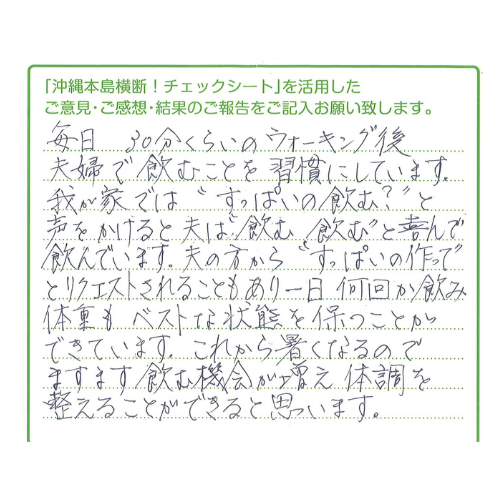 「沖縄本島横断！チェックシート」を活用した
ご意見・ご感想・結果のご報告をご記入お願い致します。
毎日 30分くらいのウォーキング後
夫婦で飲むことを習慣にしています。
我が家では〝すっぱいの飲む？〞と
声をかけると夫は〝飲む 飲む〞と喜んで
飲んでいます。夫の方から〝すっぱいの作って〞
とリクエストされることもあり一日 何回か飲み
体重も ベストな状態を保つことが
できています。これから暑くなるので
ますます飲む機会が増え 体調を
整えることができると思います。